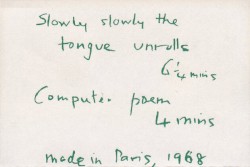 Slowly slowly the
tongue unrolls
6¼ mins
Computer poem
4 mins
made in Paris, 1968